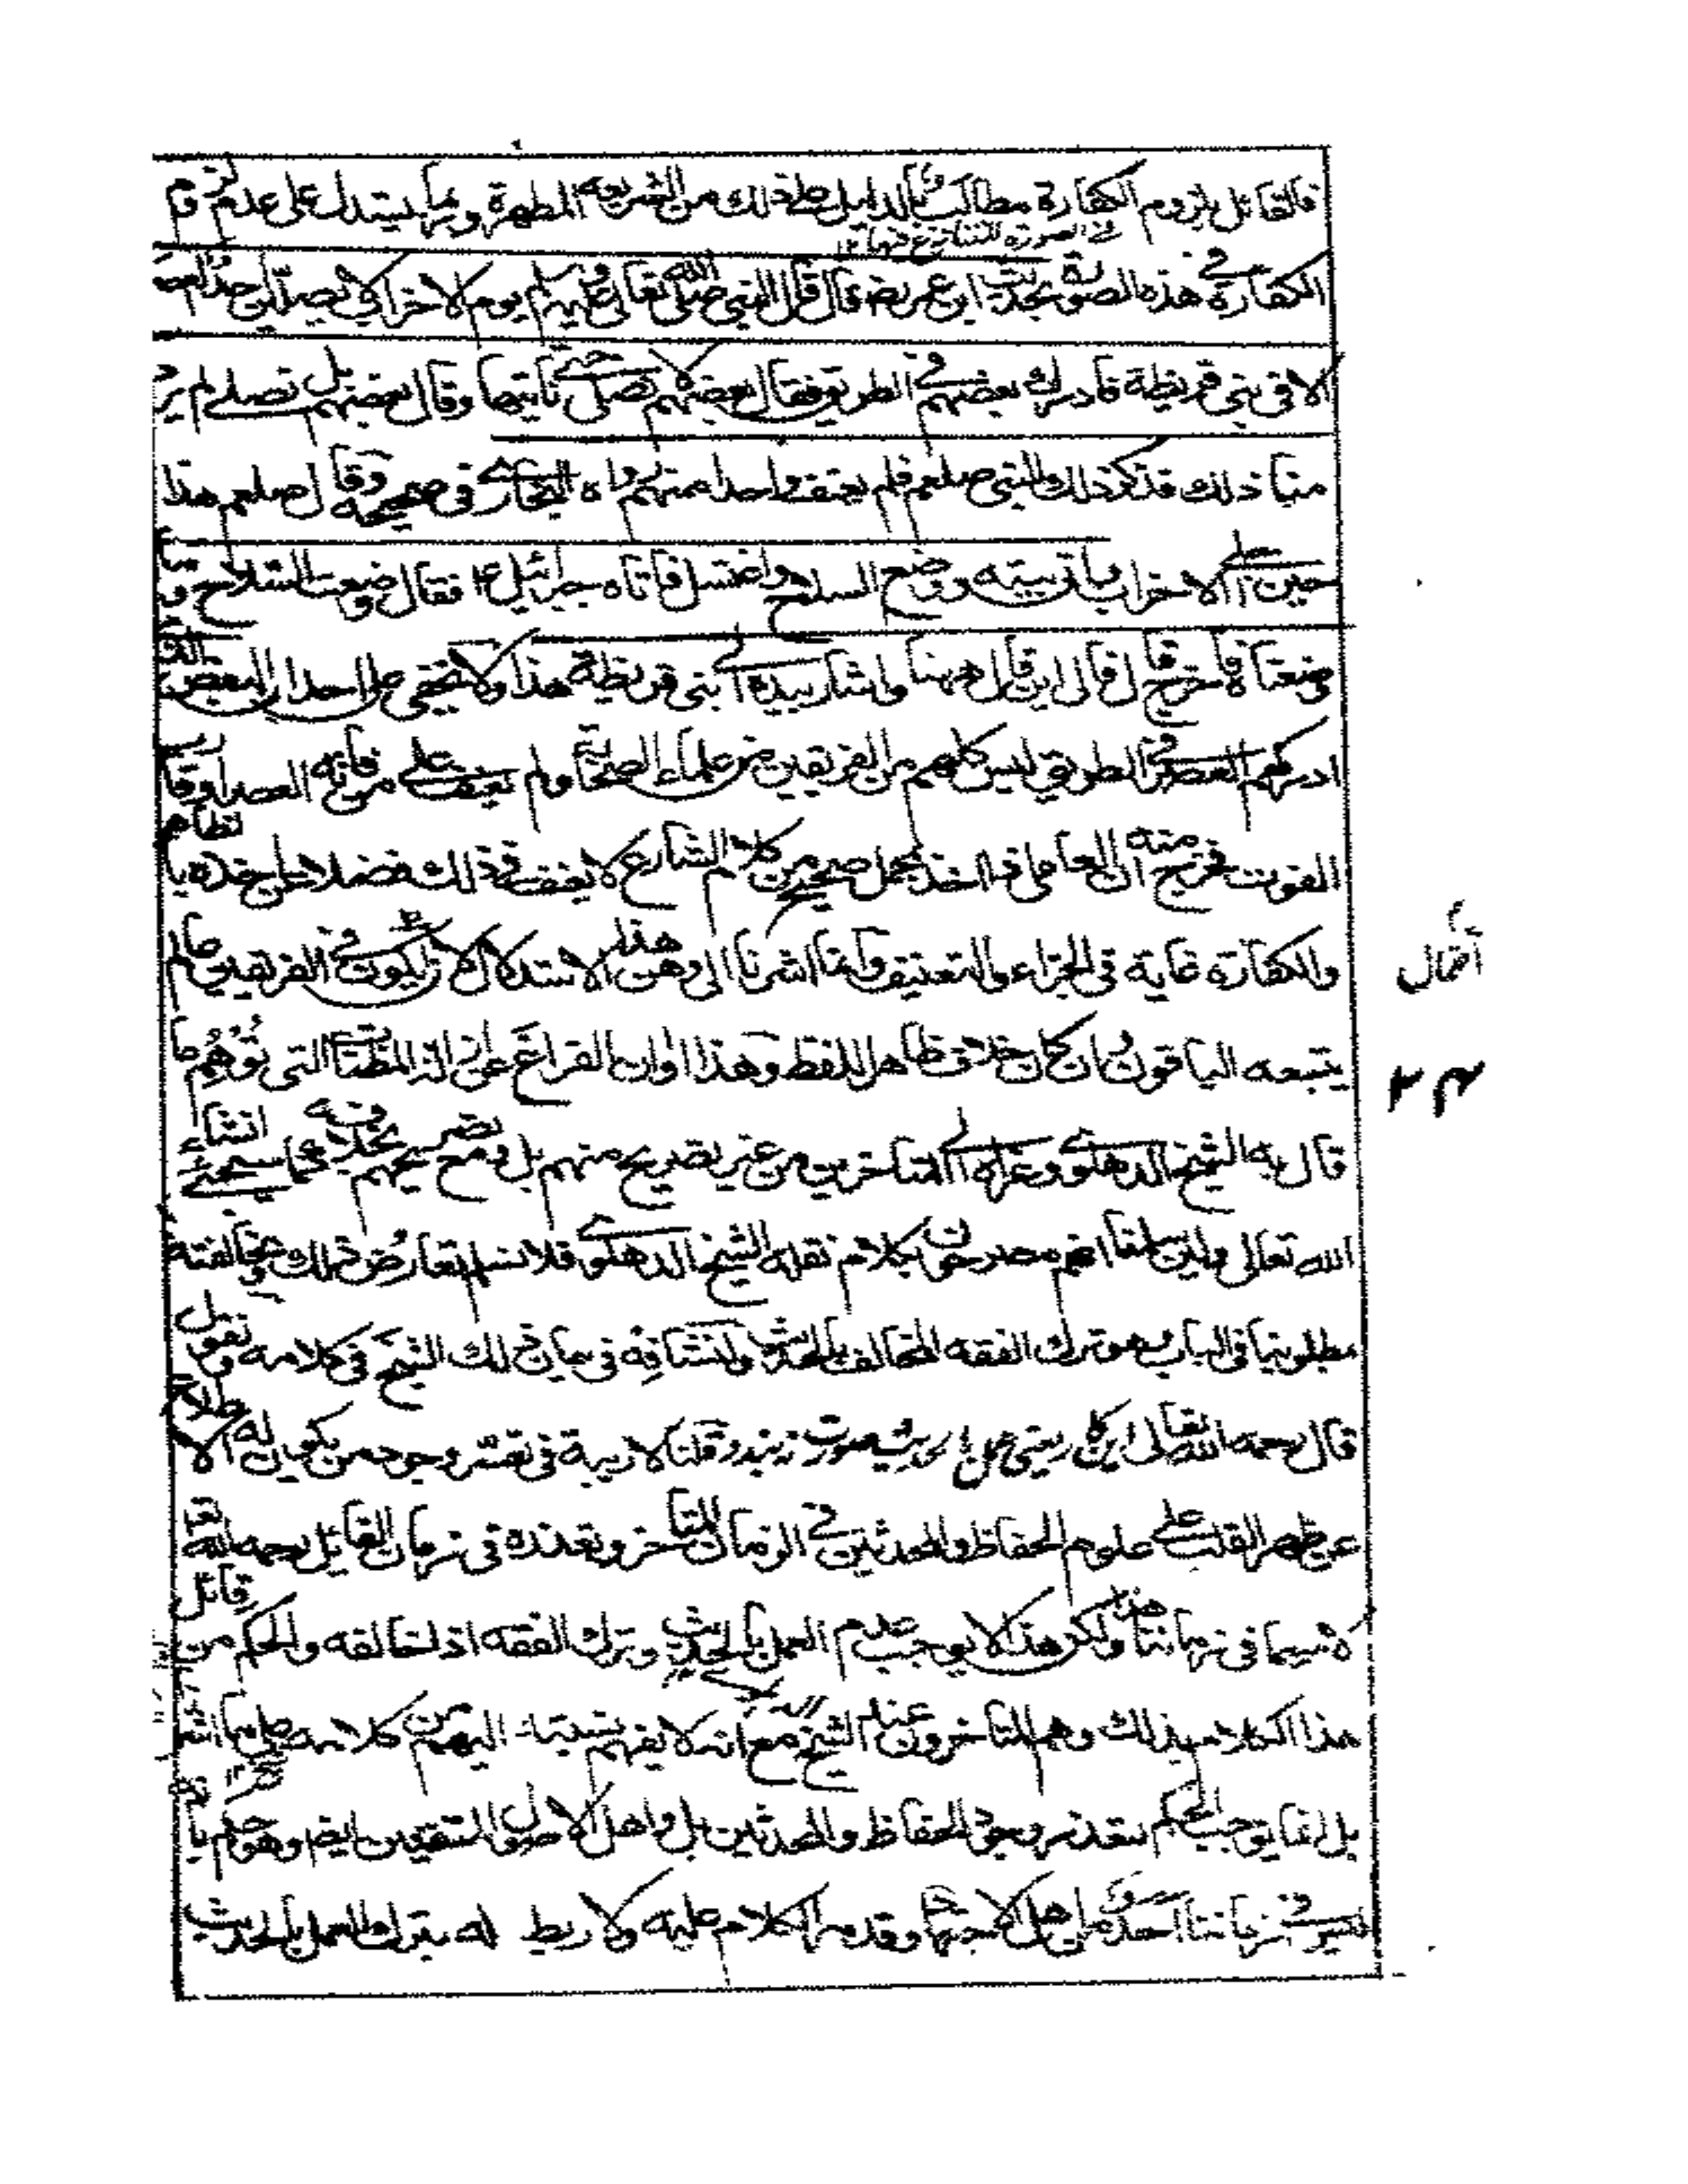 فالقائل بلزوم الكفارة مطالب بالدليل على ذلك من الشريعة المطهرة وربما يستدل على عدم لزوم
في الصورة المتنازع فيها ١٢
الكفارة في هذه الصورة بحديث ابن عمر رضـ قال قال النبي صلى الله تعالى عليه وسلم يوم الاحزاب لا يصلين احد العصر
الا في بني قريظة فادرك بعضهم في الطريق فقال بعضهم لا نصلي حتى ناتيها وقال بعضهم بل نصلي لم يرد
منا ذلك فذكر ذلك للنبي صلعم فلم يعنف واحدا منهم رواه البخاري في صحيحه وقال صلعم هذا
حين اتى الاحزاب وبات بيته ووضع السلاح واغتسل فاتاه جبرائيل ع فقال وضعت السلاح وما
وضعنا فاخرج قال فالى اين قال ههنا واشار بيده الى بني قريظة هذا ولا يخفى على احد ان البعض الذي
ادركهم العصر في الطريق ليس كلهم من الفريقين من علماء الصحابة ولم يعنف على من فاته العصر او قات
الفوت فخرج منه ان العامي اذا اخذ بمحمل صحيح من كلام الشارع لا يعنف في ذلك فضلا
والكفارة غاية في الجزاء والتعنيف وانما اشرنا الى وهن هذا الاستدلال لان يكون في الفريقين عالم
يتبعه الباقون وان كان خلاف ظاهر اللفظ وهذا اوان الفراغ عن ازالة المظنة التي توهم ما
قال به الشيخ الدهلوي وعزاه الى المتاخرين من غير تصريح منهم بل ومع تصريحهم بخلافه كما سيجئ انشاء
الله تعالى ولئن سلمنا انهم مصرحون بكلام نقله الشيخ الدهلوي فلا نسلم تعارض ذلك ومخالفته
مطلوبنا في الباب وهو ترك الفقه المخالف بالحديث ولنشافه في بيان ذلك الشيخ في كلامه ونقول
قال رحمه الله تعالى اين كار يعنى عمل بالحديث صورت نه بندد قلنا لا ريبة في تعسر وجود من يكون له الاطلاع
عن ظهر القلب على علوم الحفاظ والمحدثين في الزمان المتاخر وتعذره في زمان القائل رحمه الله تعالى
لا سيما في زماننا هذا ولكن هذا لا يوجب عدم العمل بالحديث وترك الفقه اذا خالفه والحكم من قائل
هذا الكلام بذلك وهم المتاخرون عند الشيخ مع انه لا يفهم نسبته اليهم من كلامه
بل انما يوجب الحكم بتعذر وجود الحفاظ والمحدثين بل واهل الاصول المتقدمين ايضا وهو حكم بانه
ليس في زماننا احد من اهل الاجتهاد وقد مر الكلام عليه ولا ربط له بترك العمل بالحديث
اقمال
٢٣